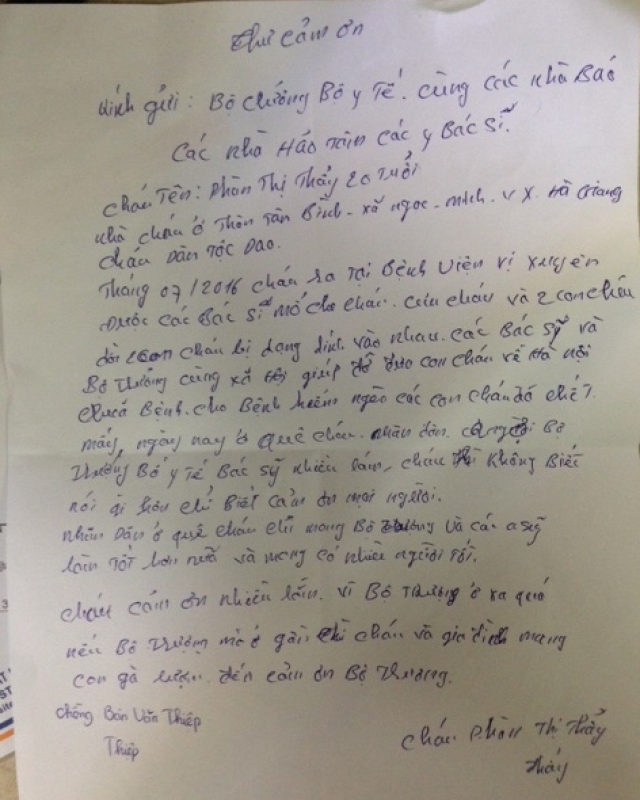 Thư cảm ơn
Kính gửi: Bộ chưởng Bộ y Tế. cùng các nhà Báo
các nhà Hảo tâm các y Bác sĩ.
cháu Tên: Phàn Thị Thảy 20 Tuổi
nhà cháu ở Thôn Tân Bình - xã ngọc - minh - V X. Hà Giang
cháu Dân Tộc Dao.
Tháng 07/2016 cháu ra Tại Bệnh Viện Vị xuyên
Được các Bác sĩ mổ cho cháu. cứu cháu và 2 con cháu
đôi con cháu bị dạng dính vào nhau. các Bác sỹ và
Bộ Trưởng cùng xã hội giúp đỡ đưa con cháu về Hà nội
chưá Bệnh. cho Bệnh hiểm ngèo các con cháu đó chết.
mấy, ngày nay ở quê cháu. nhân dân. Bộ
Trưởng Bộ y Tế Bác sỹ nhiều lắm, cháu thì không Biết
nói gì hơn chỉ Biết cảm ơn mọi người.
nhân Dân ở quê cháu chỉ mong Bộ Trưởng và các sỹ
làm Tốt hơn nữa và mong có nhiều người Tốt.
cháu cảm ơn nhiều lắm. vì Bộ Trưởng ở xa quá
nếu Bộ Trưởng mà ở gần thì cháu và gia đình mang
con gà rượu. đến cảm ơn Bộ Trưởng.
chồng Bán Văn Thiệp
Thiệp
cháu Phàn Thị Thảy
Thảy